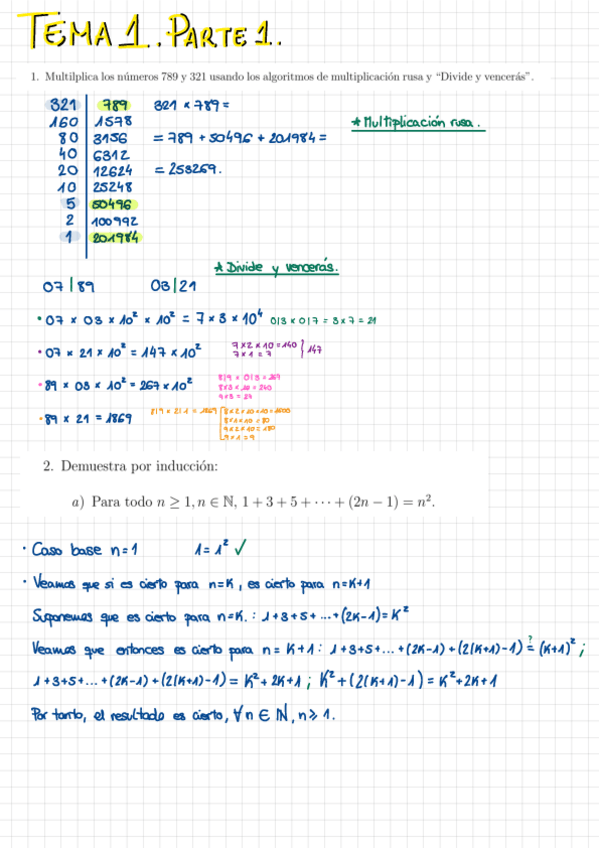 TEMA 1. PARTE 1.
1. Multilplica los números 789 y 321 usando los algoritmos de multiplicación rusa y “Divide y vencerás”.
321 789 321 × 789 =
160 1578 * Multiplicación rusa.
80 3156 = 789 + 50496 + 201984 =
40 6312
20 12624 = 253269.
10 25248
5 50496
2 100992
1 201984
* Divide y vencerás.
07|89 03|21
• 07 × 03 × 10² × 10² = 7 × 3 × 10⁴ 0|3 × 0|7 = 3 × 7 = 21
• 07 × 21 × 10² = 147 × 10² 7 × 2 × 10 = 140 } 147
7 × 1 = 7
• 89 × 03 × 10² = 267 × 10² 8|9 × 0|3 = 267
8×3×10 = 240
9×3 = 27
• 89 × 21 = 1869 8|9 × 2|1 = 1869 8×2×10×10=1600
8×1×10 = 80
9×2×10 = 180
9×1 = 9
2. Demuestra por inducción:
a) Para todo n ≥ 1, n ∈ ℕ, 1 + 3 + 5 + ··· + (2n − 1) = n².
• Caso base n=1 1=1² ✓
• Veamos que si es cierto para n=K, es cierto para n=K+1
Suponemos que es cierto para n=K.: 1+3+5+...+(2K-1)=K²
Veamos que entonces es cierto para n=K+1: 1+3+5+...+(2K-1)+(2(K+1)-1) ≟ (K+1)²;
1+3+5+...+(2K-1)+(2(K+1)-1) = K²+2K+1; K²+(2(K+1)-1) = K²+2K+1
Por tanto, el resultado es cierto, ∀n ∈ ℕ, n ≥ 1.